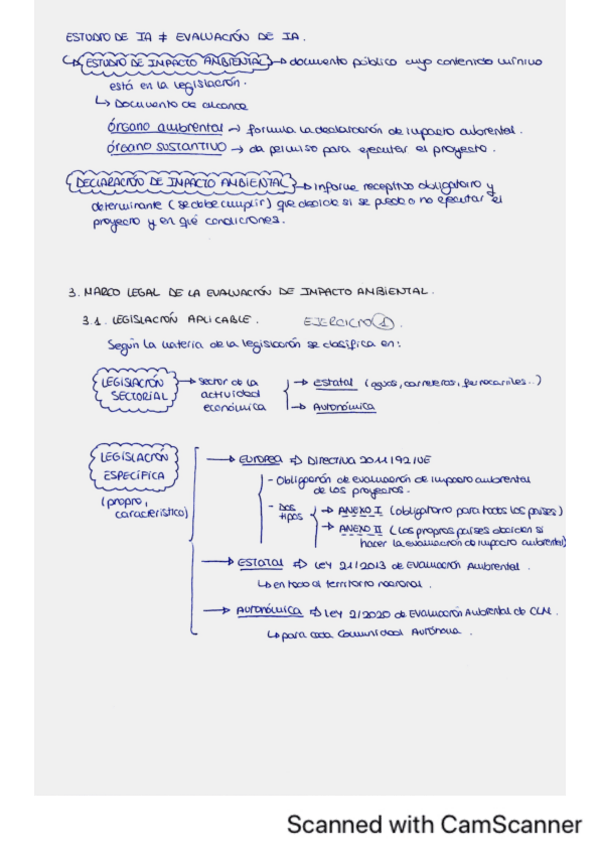 ESTUDIO DE IA ≠ EVALUACIÓN DE IA.
↳ ESTUDIO DE IMPACTO AMBIENTAL → documento público cuyo contenido mínimo
está en la legislación.
↳ Documento de alcance
órgano ambiental → formula la declaración de impacto ambiental.
órgano sustantivo → da permiso para ejecutar el proyecto.
DECLARACIÓN DE IMPACTO AMBIENTAL → informe receptivo obligatorio y
determinante (se debe cumplir) que decide si se puede o no ejecutar el
proyecto y en qué condiciones.
3. MARCO LEGAL DE LA EVALUACIÓN DE IMPACTO AMBIENTAL.
3.1. LEGISLACIÓN APLICABLE. EJERCICIO 1.
Según la materia de la legislación se clasifica en:
LEGISLACIÓN SECTORIAL → sector de la actividad económica
→ Estatal (aguas, carreteras, ferrocarriles..)
→ Autonómica
LEGISLACIÓN ESPECÍFICA (propio, característico)
→ EUROPEA ⇒ DIRECTIVA 2011/92/UE
- Obligación de evaluación de impacto ambiental
de los proyectos.
- Dos tipos → ANEXO I (obligatorio para todos los países)
→ ANEXO II (los propios países deciden si
hacer la evaluación de impacto ambiental)
→ ESTATAL ⇒ LEY 21/2013 de Evaluación Ambiental.
↳ en todo el territorio nacional.
→ Autonómica ⇒ LEY 2/2020 de Evaluación Ambiental de CLM.
↳ para cada Comunidad Autónoma.
Scanned with CamScanner